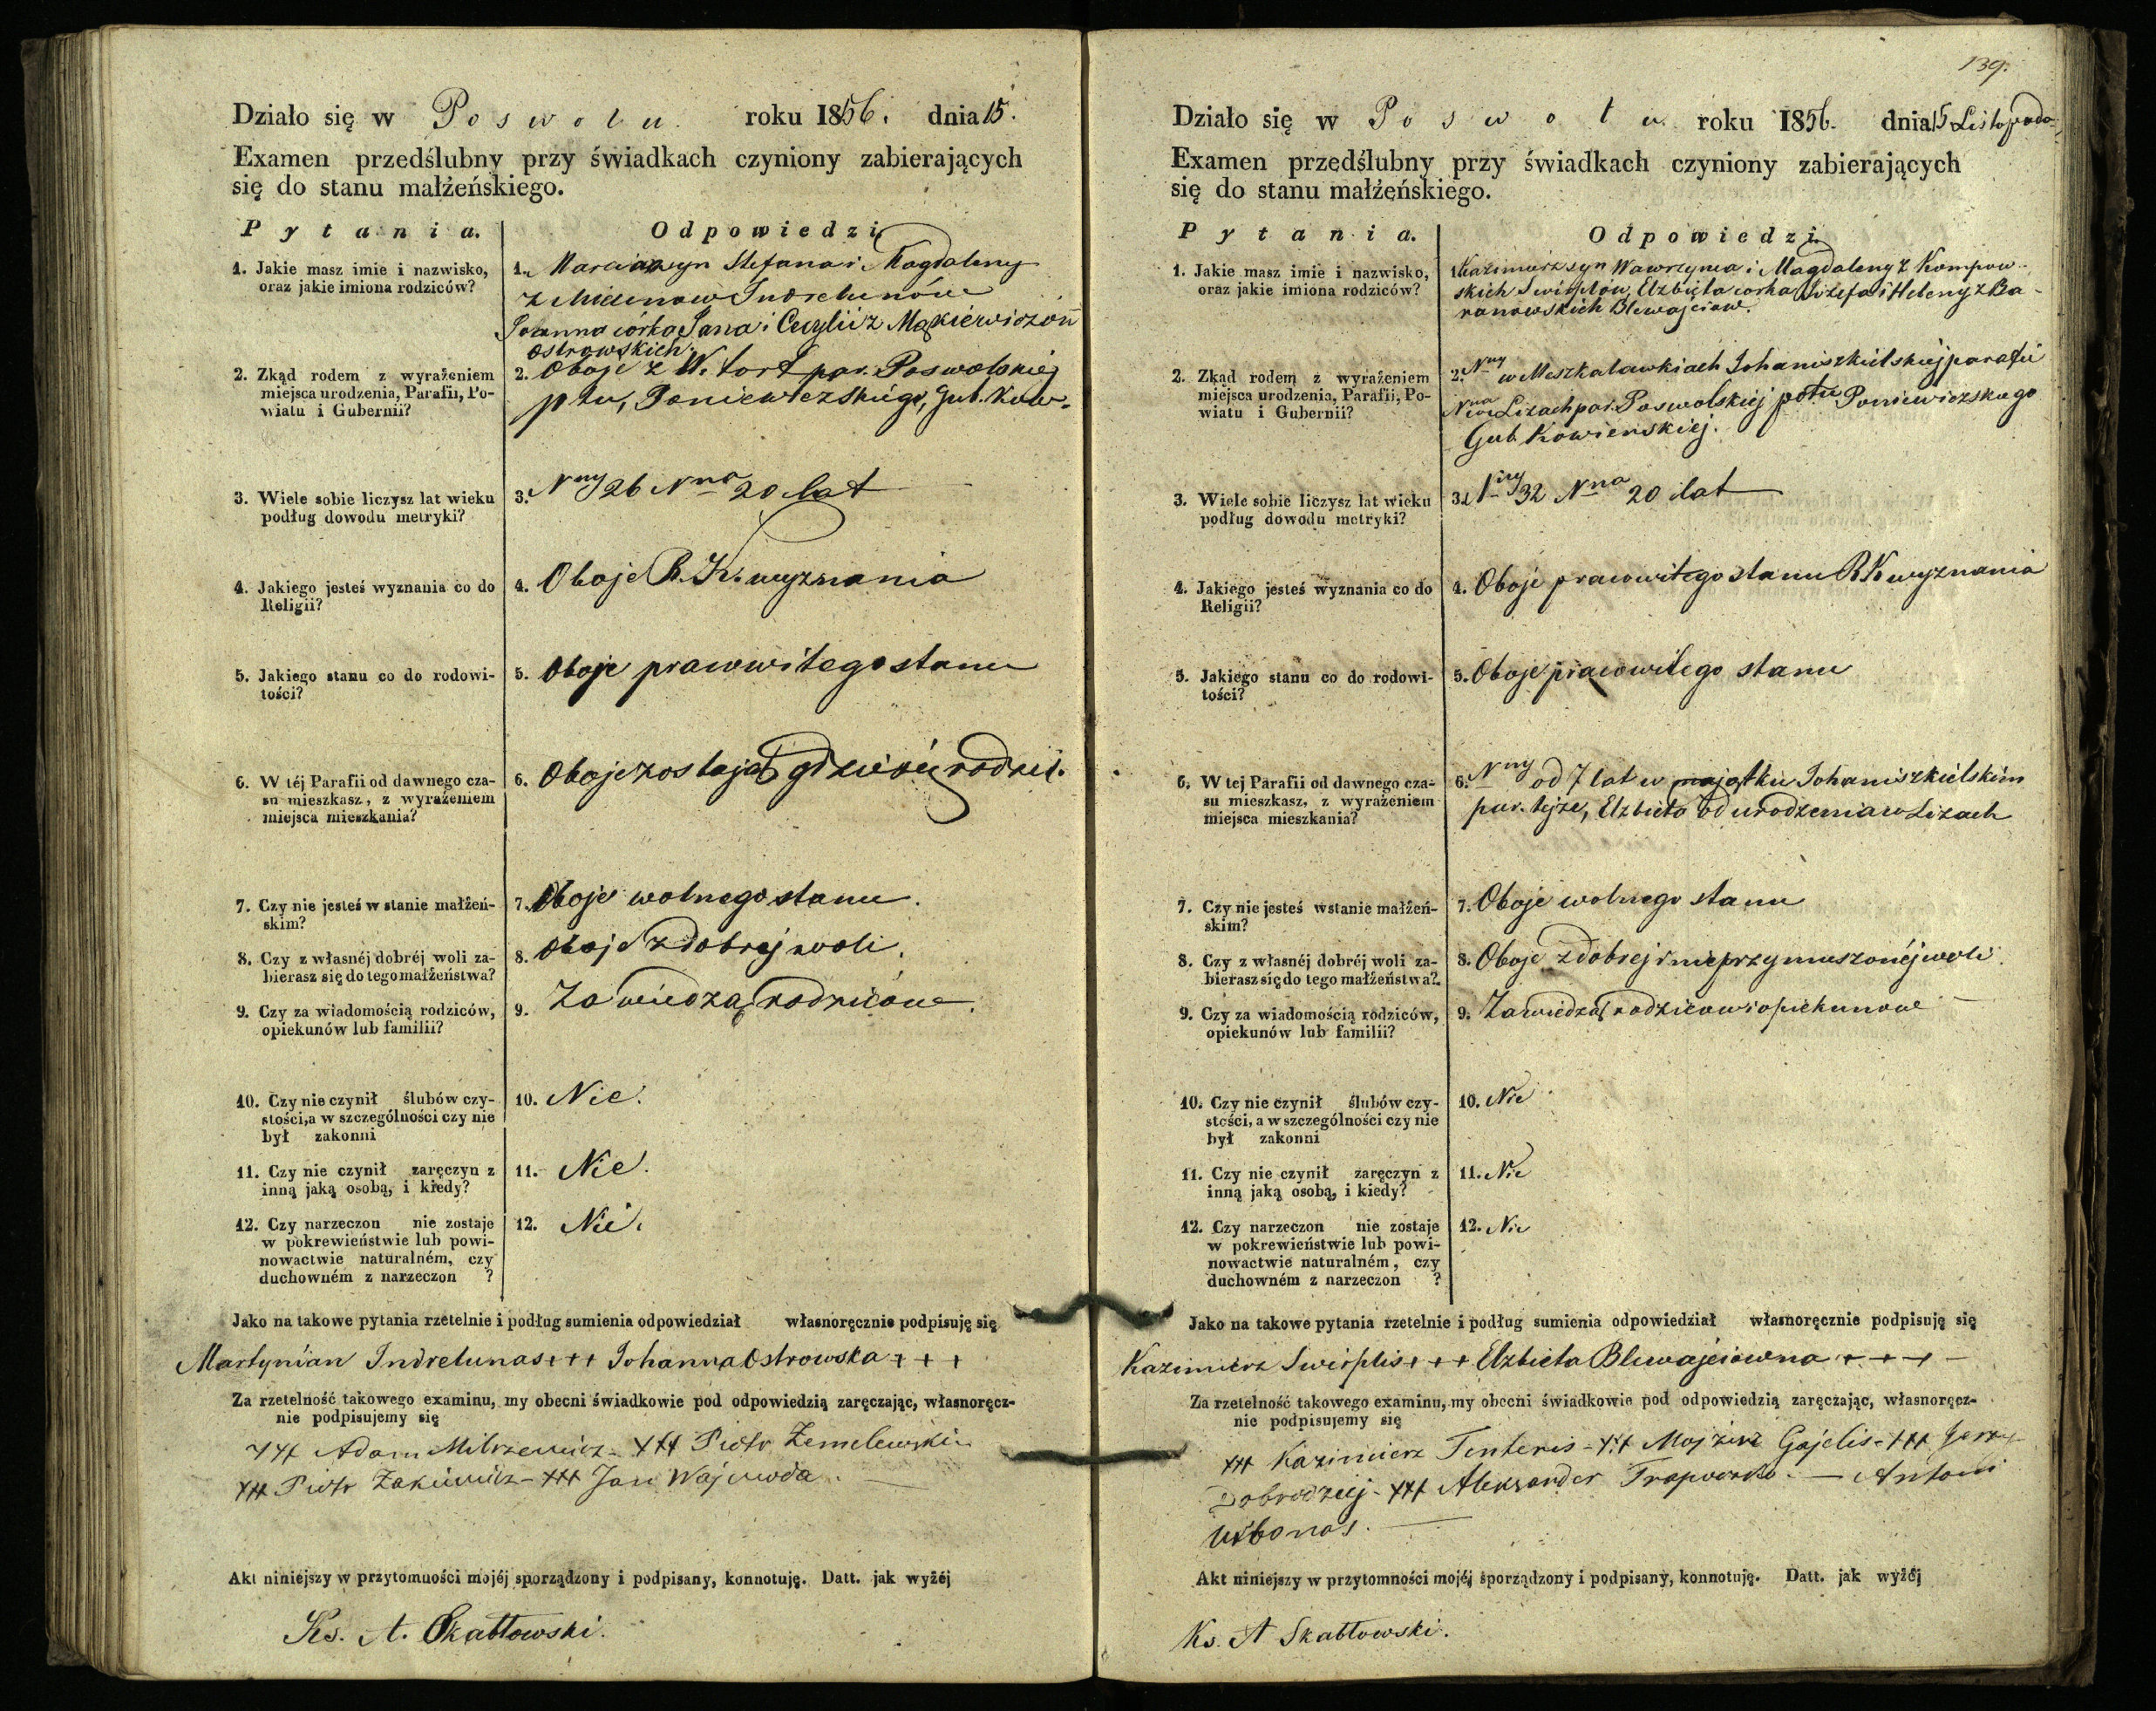 Działo się w Poswolu roku 1856. dnia 15.
Examen przedślubny przy świadkach czyniony zabierających
się do stanu małżeńskiego.
Pytania. Odpowiedzi
1. Jakie masz imie i nazwisko,
oraz jakie imiona rodziców?
1. Marcian syn Stefana i Magdaleny
z Indrelunów
Joanna córka Jana i Cecylii z Mackiewiczów
Ostrowskich.
2. Zkąd rodem z wyrażeniem
miejsca urodzenia, Parafii, Po-
wiatu i Gubernii?
2. Oboje z par. Poswolskiej
ptu, Poniewiezskiego, Gub. Kow.
3. Wiele sobie liczysz lat wieku
podług dowodu metryki?
3. Nny 26 Nna 20 lat
4. Jakiego jesteś wyznania co do
Religii?
4. Oboje R. K. wyznania
5. Jakiego stanu co do rodowi-
tości?
5. Oboje pracowitego stanu
6. W téj Parafii od dawnego cza-
su mieszkasz, z wyrażeniem
miejsca mieszkania?
6. Oboje zostają gdzie się rodzili.
7. Czy nie jesteś w stanie małżeń-
skim?
7. Oboje wolnego stanu.
8. Czy z własnéj dobréj woli za-
bierasz się do tego małżeństwa?
8. Oboje z dobrej woli.
9. Czy za wiadomością rodziców,
opiekunów lub familii?
9. Za wiedzą rodziców.
10. Czy nie czynił ślubów czy-
stości, a w szczególności czy nie
był zakonni
10. Nie.
11. Czy nie czynił zaręczyn z
inną jaką osobą, i kiedy?
11. Nie.
12. Czy narzeczon nie zostaje
w pokrewieństwie lub powi-
nowactwie naturalném, czy
duchowném z narzeczon ?
12. Nie.
Jako na takowe pytania rzetelnie i podług sumienia odpowiedział własnoręcznie podpisuję się
Martynian Indrelunas + + + Johanna Ostrowska + + +
Za rzetelność takowego examinu, my obecni świadkowie pod odpowiedzią zaręczając, własnoręcz-
nie podpisujemy się
+++ Adam Milrzewicz - +++ Piotr Zemelewski
+++ Piotr Zakiewicz - +++ Jan Wojewoda.
Akt niniejszy w przytomności mojéj sporządzony i podpisany, konnotuję. Datt. jak wyźéj
Ks. A. Skabłowski.
139.
Działo się w Poswolu roku 1856. dnia 15 Listopada
Examen przedślubny przy świadkach czyniony zabierających
się do stanu małżeńskiego.
Pytania. Odpowiedzi
1. Jakie masz imie i nazwisko,
oraz jakie imiona rodziców?
1. Kazimierz syn Wawrzynca i Magdaleny z Kompow-
skich Swirplow, Elzbieta corka Jozefa i Heleny z Ba-
ranowskich Blewajciow.
2. Zkąd rodem z wyrażeniem
miejsca urodzenia, Parafii, Po-
wiatu i Gubernii?
2. Nny w Meszkalawkiach Johaniszkielskiej parafii
Nna w Lizach par. Poswolskiej pttu Poniewiezskiego
Gub. Kowienskiej.
3. Wiele sobie liczysz lat wieku
podług dowodu metryki?
3. Nny 32 Nna 20 lat
4. Jakiego jesteś wyznania co do
Religii?
4. Oboje pracowitego stanu RK wyznania
5. Jakiego stanu co do rodowi-
tości?
5. Oboje pracowitego stanu
6. W tej Parafii od dawnego cza-
su mieszkasz, z wyrażeniem
miejsca mieszkania?
6. Nny od 7 lat w majątku Johaniszkielskim
par. tejże, Elzbieta od urodzenia w Lizach
7. Czy nie jesteś wstanie małżeń-
skim?
7. Oboje wolnego stanu
8. Czy z własnéj dobréj woli za-
bierasz się do tego małżeństwa?
8. Oboje z dobrej i nieprzymuszonéj woli.
9. Czy za wiadomością rodziców,
opiekunów lub familii?
9. Za wiedzą rodzicow i opiekunow
10. Czy nie czynił ślubów czy-
stości, a w szczególności czy nie
był zakonni
10. Nie
11. Czy nie czynił zaręczyn z
inną jaką osobą, i kiedy?
11. Nie
12. Czy narzeczon nie zostaje
w pokrewieństwie lub powi-
nowactwie naturalném, czy
duchowném z narzeczon ?
12. Nie
Jako na takowe pytania rzetelnie i podług sumienia odpowiedział własnoręcznie podpisuję się
Kazimierz Swirplis + + + Elzbieta Blewajciowna + + +
Za rzetelność takowego examinu, my obecni świadkowie pod odpowiedzią zaręczając, własnoręcz-
nie podpisujemy się
+++ Kazimierz Tenteris - +++ Mojżesz Gajelis - +++ Jerzy
Dobrodziej - +++ Aleksander - Antoni
Urbonas.
Akt niniejszy w przytomności mojéj sporządzony i podpisany, konnotuję. Datt. jak wyźéj
Ks. A Skabłowski.